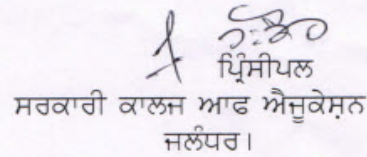 ਪ੍ਰਿੰਸੀਪਲ
ਸਰਕਾਰੀ ਕਾਲਜ ਆਫ ਐਜੂਕੇਸ਼ਨ
ਜਲੰਧਰ।